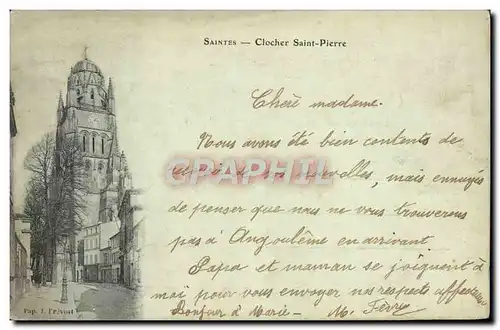 SAINTES — Clocher Saint-Pierre
Chère madame.
Nous avons été bien contents de
de vos nouvelles, mais ennuyés
CPRPHIL
de penser que nous ne vous trouverons
pas à Angoulême en arrivant
Papa et maman se joignent à
moi pour vous envoyer nos respects affectueux
Bonjour à Marie – M.
Pap. J. Prévost